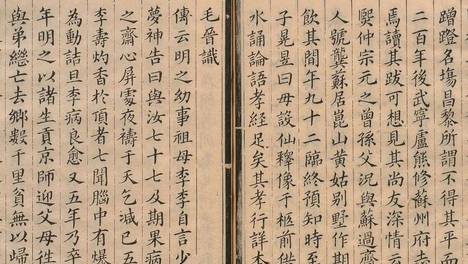 蹭蹬昌黎所謂不得其平
二百年後武寧盧熊修蘇州府
馬讀其跋可想見其尚友深情
熙仲宗元之曾孫父況與蘇過齋
人號龔蘇居崑山黃姑別墅作期
飲其間年九十二臨終預知時至
子晃昱曰毋設仙釋像于柩前
水誦論語孝經足矣其孝行詳本
毛晉識
傳云明之幼事祖母李李自言少
夢神告曰與汝七十七及期果病
之齋心屏處夜禱于天乞減己五
李壽灼香於頂者七聞腦中有爆
為動詰旦李病良愈又五年乃卒
年明之以諸生貢京師迎父母往
與弟繼亡去鄉數千里貧無以歸